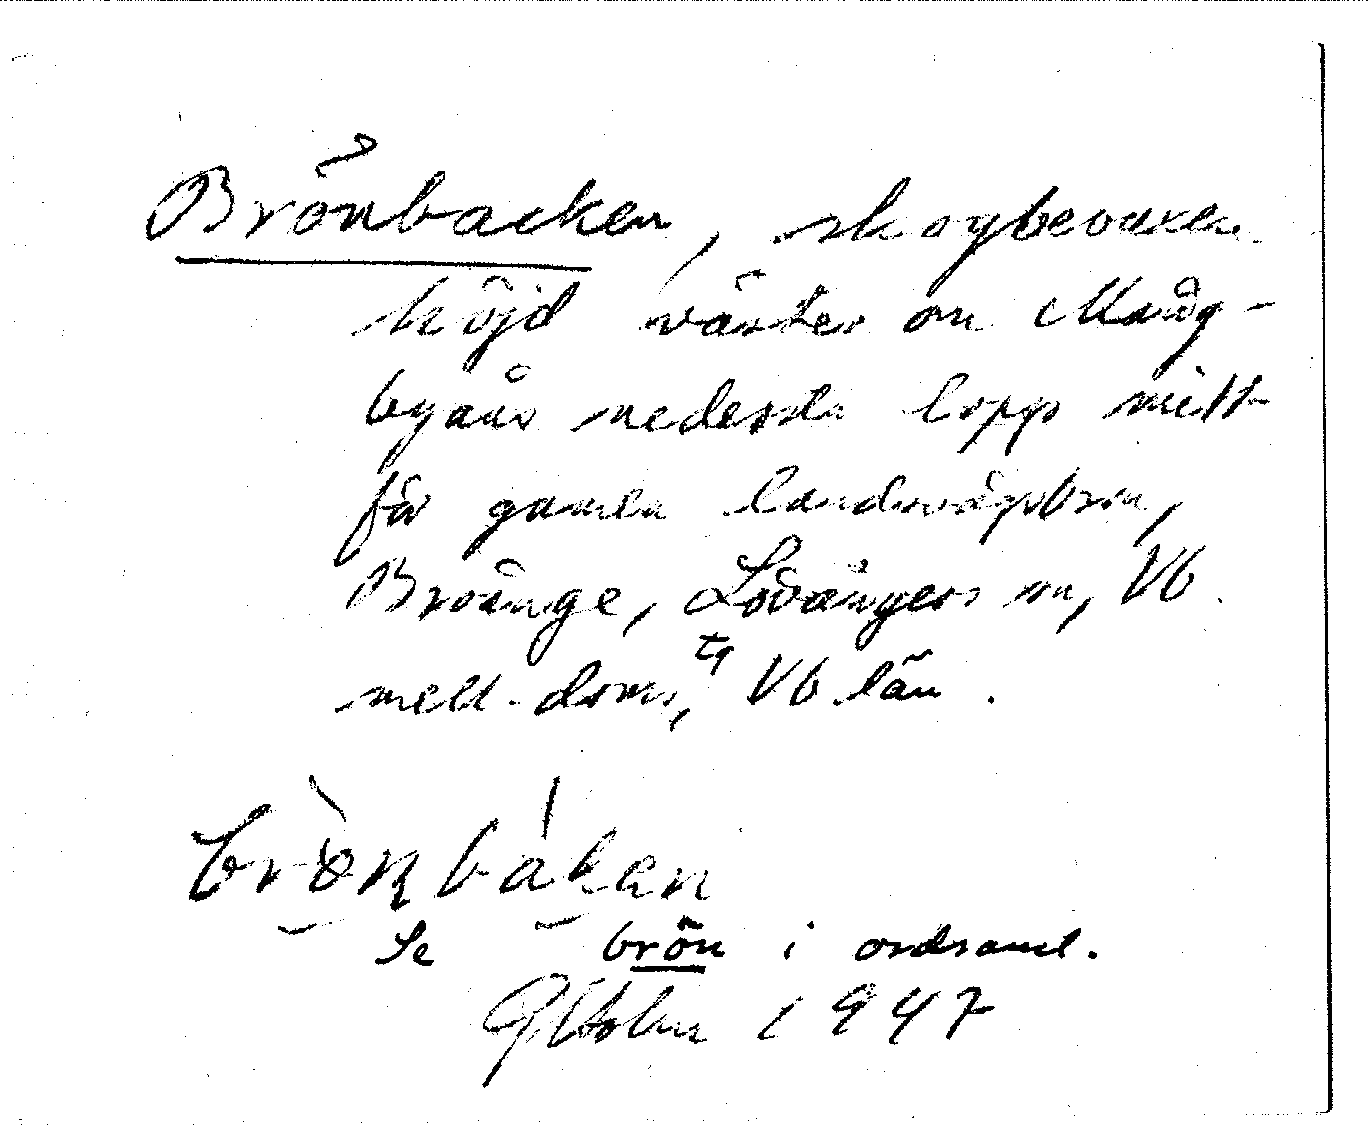 Brönbacken, skogbevuxen
höjd väster om Mång-
byåns nedersta lopp mitt
för gamla landsvägsbron,
Broänge, Lövångers sn, Vb
mell. doms. tg Vb län.
brön båken
Se brön i ordsaml.
Oktober 1947